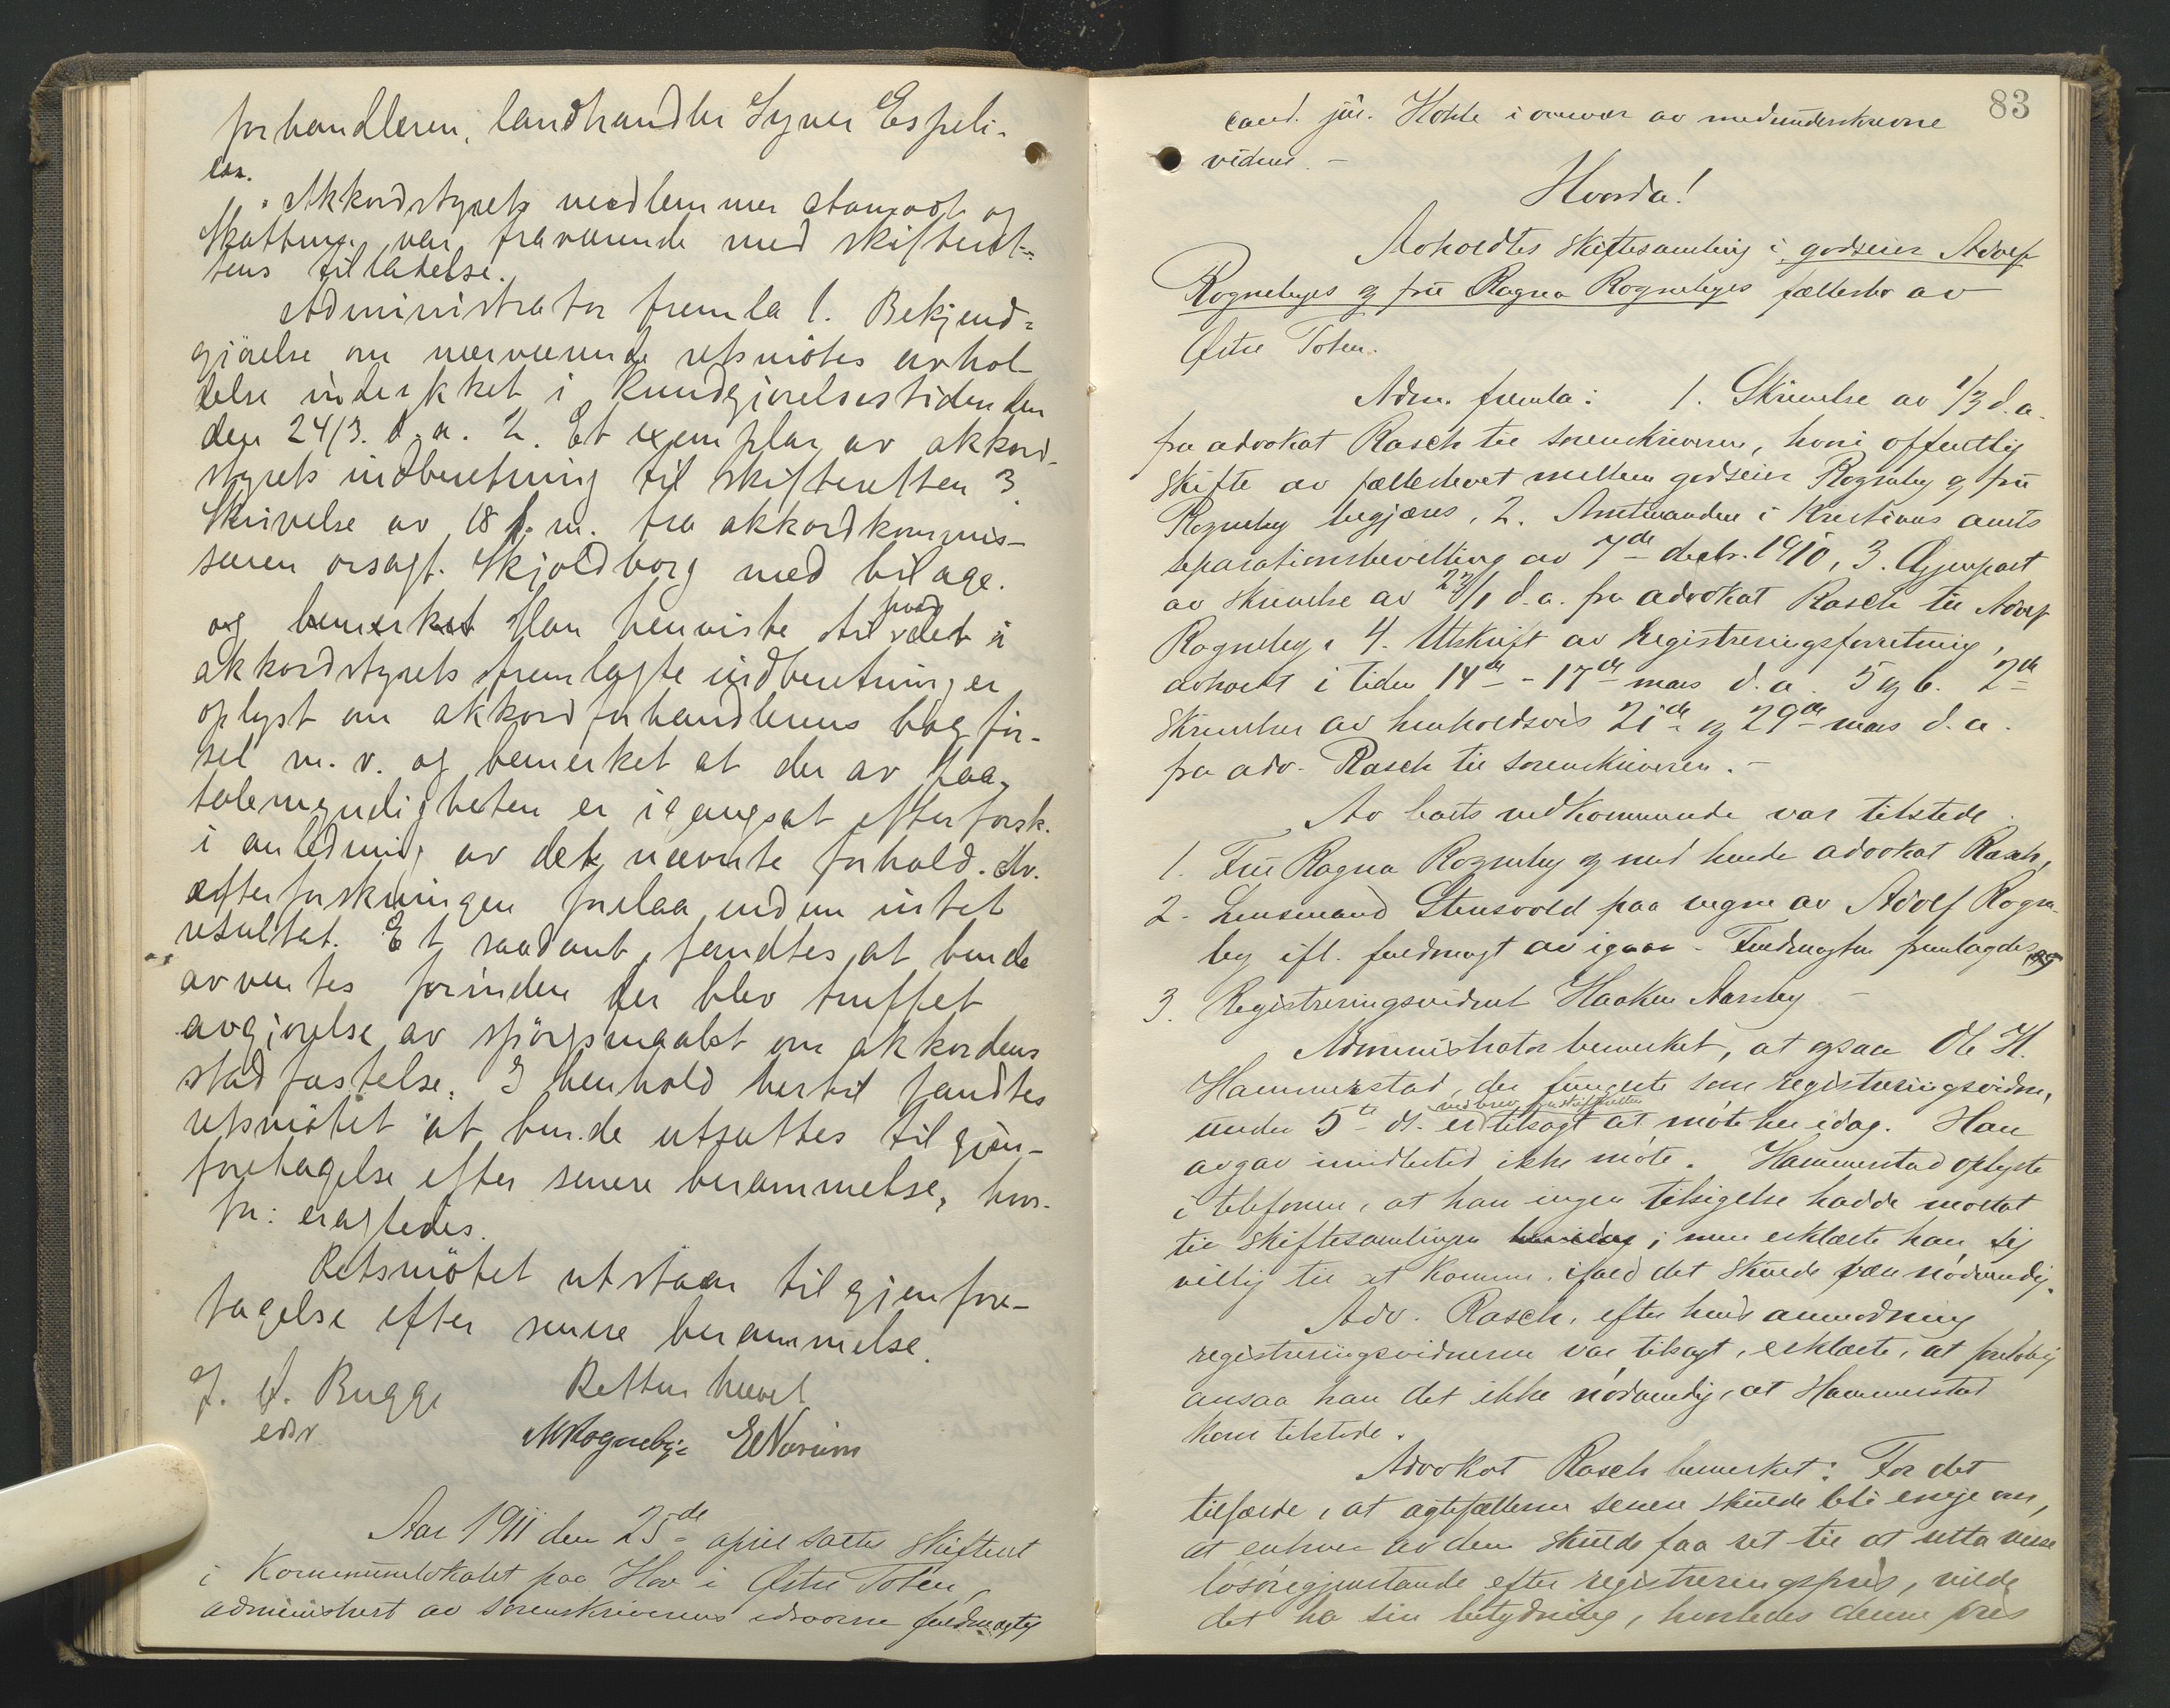 forhandleren, landhandler Syver Espeli-
en.
Akkordstyrets medlemmer Aamodt og
Skattum var fraværende med skifteret-
tens tilladelse.
Administrator fremla 1. Bekjend-
gjørelse om nærværende retsmötes avhol-
delse indrykket i Kundgjörelsestidenden
den 24/3. d. a. 2. Et exemplar av akkord-
styrets indberetning til skifteretten 3.
Skrivelse av 18 d. m. fra akkordkommis-
særen orsagf. Skjoldborg med bilage.
og bemerket Han henviste til hvad det i
akkordstyrets fremlagte indberetning er
oplyst om akkordforhandlerens bogför-
sel m. v. og bemerket at der av paa-
talemyndigheten er igangsat efterforsk.
i anledning av det nævnte forhold. Av
efterforskningen forelaa endnu intet
resultat. Et saadant fandtes at burde
avventes forinden der blev truffet
avgjörelse av spörgsmaalet om akkordens
stadfæstelse. I henhold hertil fandtes
retsmötet at burde utsættes til gjen-
foretagelse efter senere berammelse, hvor-
for: eragtedes.
Retsmötet utstaar til gjenfore-
tagelse efter senere berammelse.
Retten hævet
J. A. Bugge
edsv
MRognebye ENorum
Aar 1911 den 25de april sattes skifteret
i Kommunelokalet paa Hov i Østre Toten,
administrert av sorenskriverens edsvorne fuldmægtig
83
cand. jur. Holte i overvær av medunderskrevne
vidner. -
Hvorda!
Avholdtes skiftesamling i godseier Adolf
Rognebyes og fru Ragna Rognebyes fællesbo av
Østre Toten.
Adm. fremla: 1. Skrivelse av 1/3 d. a.
fra advokat Rasch til sorenskriveren, hvori offentlig
skifte av fællesboet mellem godseier Rogneby og fru
Rogneby begjæres, 2. Amtmanden i Kristians amts
separationsbevilling av 7de decbr. 1910, 3. Gjenpart
av skrivelse av 23/1 d. a. fra advokat Rasch til Adolf
Rogneby, 4. Utskrift av Registreringsforretning,
avholdt i tiden 14de - 17de mars d. a. 5 og 6. 2de
skrivelser av henholdsvis 21de og 29de mars d. a.
fra adv. Rasch til sorenskriveren. -
Av boets vedkommende var tilstede
1. Fru Ragna Rogneby og med hende advokat Rasch,
2. Lensmand Stensvold paa vegne av Adolf Rogne-
by ifl. fuldmagt av igaar - Fuldmagten fremlagdes og
3. Registreringsvidnet Haaken Aarsby -
Administrator bemerket, at ogsaa Ole H.
Hammerstad, der fungerte som registreringsvidne,
ved brev fra skifteretten
under 5te ds. er tilsagt at möte her idag. Han
avgav imidlertid ikke möte. Hammerstad oplyste
i telefonen, at han ingen tilsigelse hadde mottat
til skiftesamlingen her idag; men erklærte han sig
villig til at komme, ifald det skulde være nödvendig.
Adv. Rasch, efter hvis anmodning
registreringsvidnerne var tilsagt, erklærte, at foreløbig
ansaa han det ikke nödvendig, at Hammerstad
kom tilstede.
Advokat Rasch bemerket: For det
tilfælde, at ægtefællerne senere skulde bli enige om,
at enhver av dem skulde faa ret til at utta visse
lösöregjenstande efter registreringspris, vilde
det ha sin betydning, hvorledes denne pris